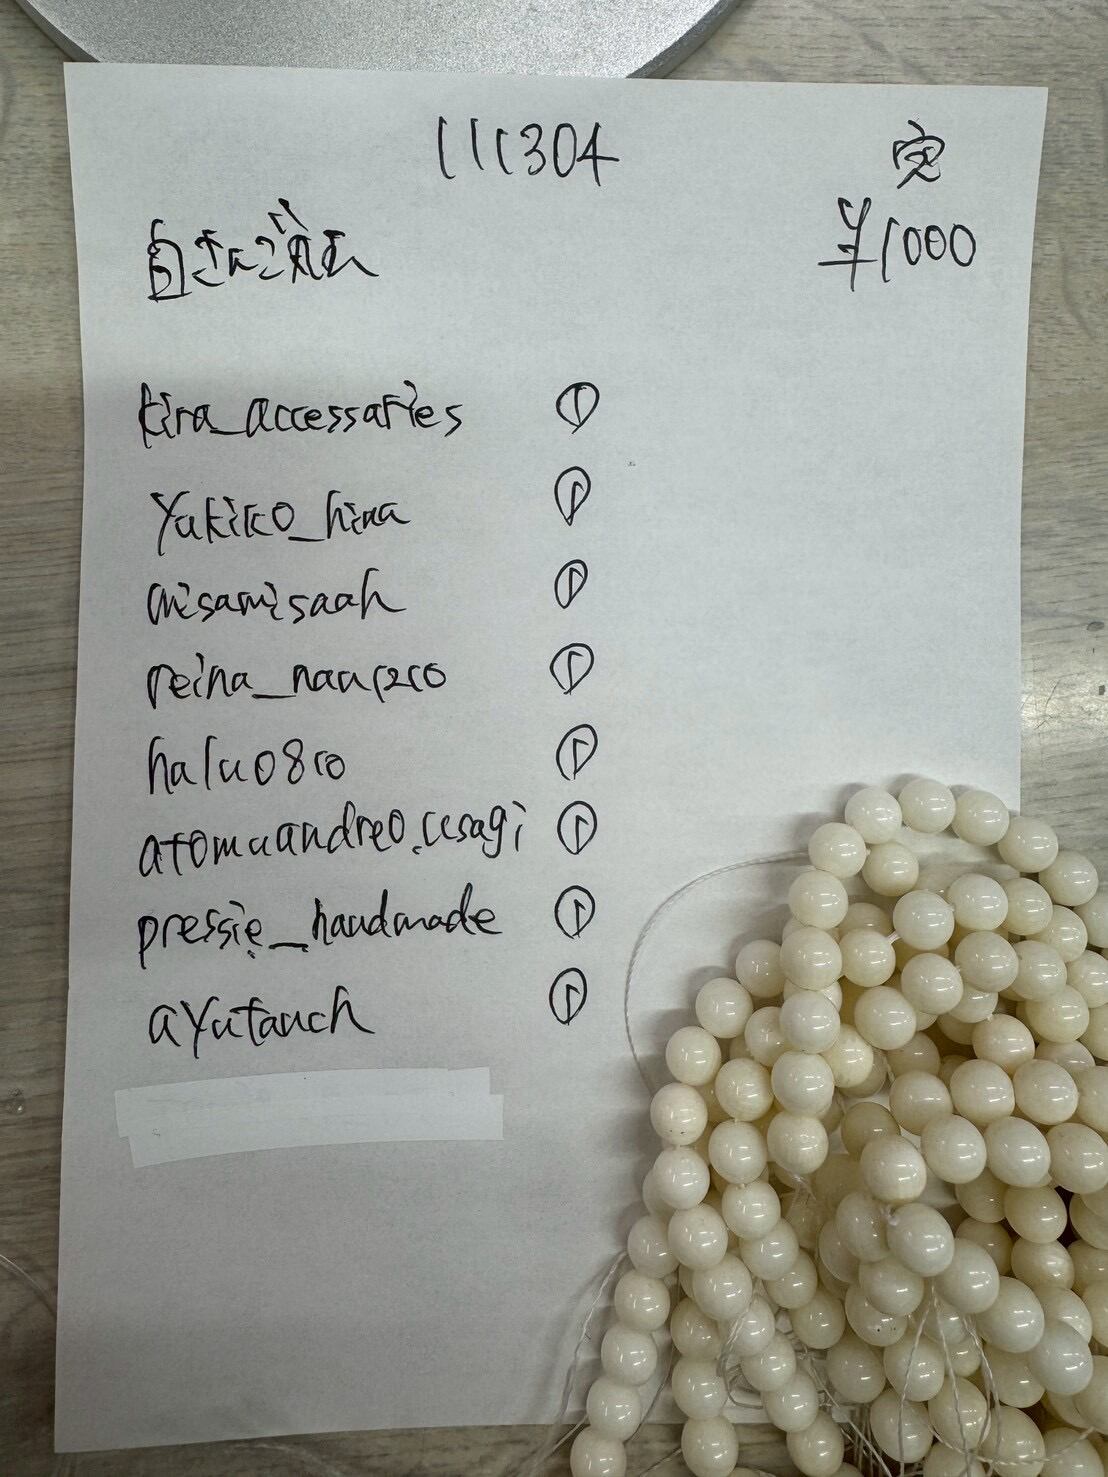 111304
完
白さんご 丸玉
¥1000
kira_accessaries ①
yukiko_hina ①
misamisaah ①
reina_nau1210 ①
halu0810 ①
atomuandreo.usagi ①
pressie_handmade ①
ayutanch ①